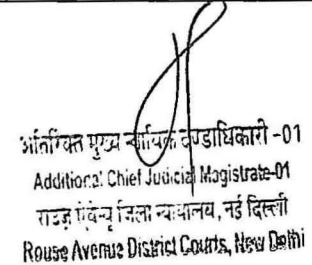 अतिरिक्त मुख्य न्यायिक दण्डाधिकारी -01
Additional Chief Judicial Magistrate-01
राउज़ एवेन्यू जिला न्यायालय, नई दिल्ली
Rouse Avenue District Courts, New Delhi